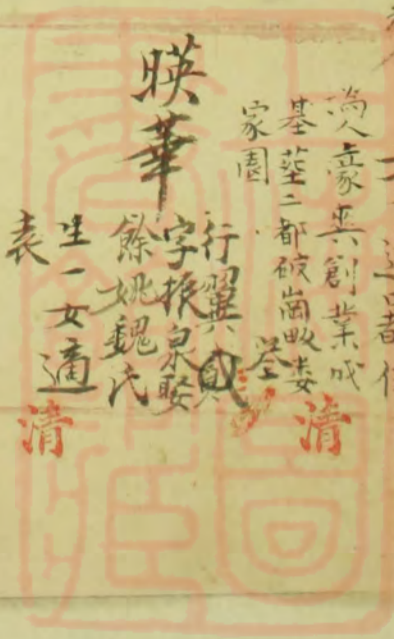 為人豪爽創業成
基塟二都破崗畈娄
家園 塟
清
暎華
行翼貳
字振泉娶
餘姚魏氏
生一女適
袁
清